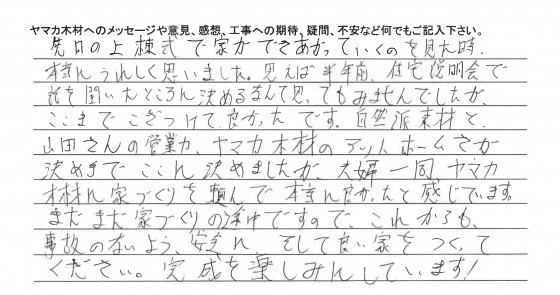 ヤマカ木材へのメッセージや意見、感想、工事への期待、疑問、不安など何でもご記入下さい。
先日の上棟式で家ができあがっていくのを見た時、
本当にうれしく思いました。思えば半年前、住宅説明会で
話を聞いたところに決めるなんて思ってもみませんでしたが、
ここまでこぎつけて良かったです。自然派素材と、
山田さんの営業力、ヤマカ木材のアットホームさが
決め手でここに決めましたが、夫婦一同ヤマカ
木材に家づくりを頼んで本当に良かったと感じています。
まだまだ家づくりの途中ですので、これからも、
事故のないよう、安全に、そして良い家をつくって
ください。完成を楽しみにしています!